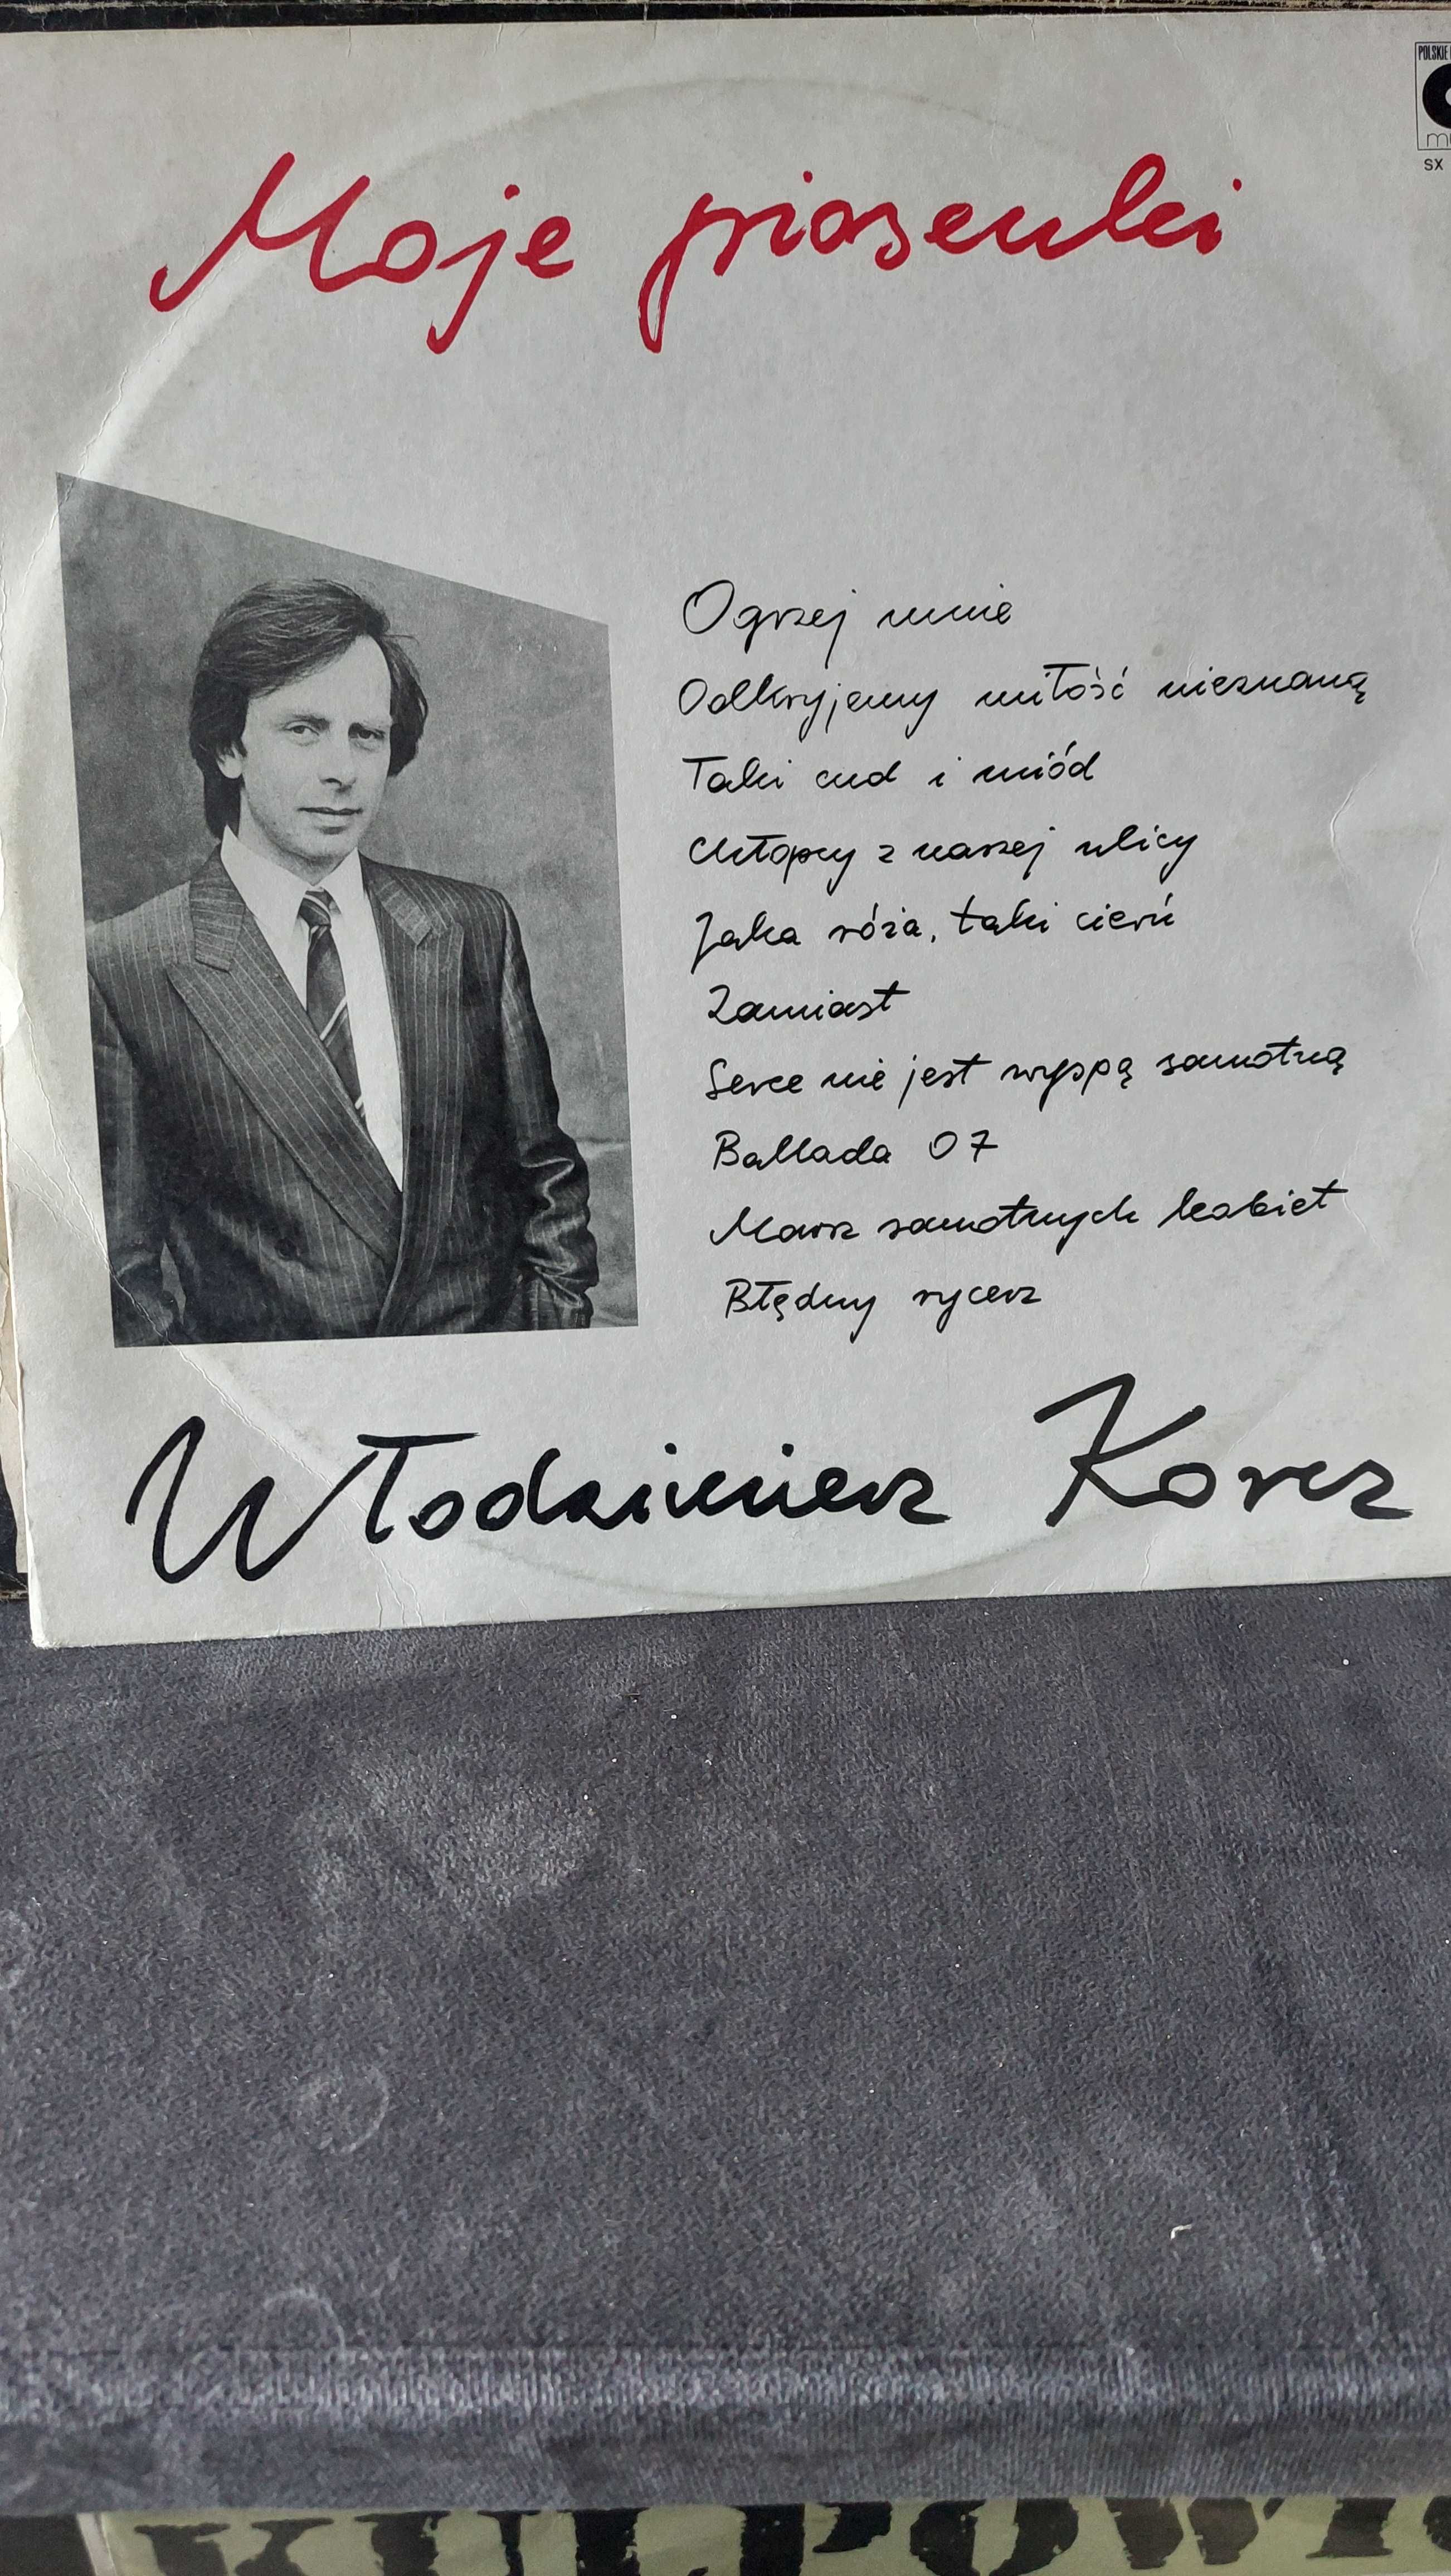 POLSKIE
SX
Moje piosenki
Ogrzej mnie
Odkryjemy miłość nieznaną
Taki cud i miód
Chłopcy z naszej ulicy
Jaka róża, taki cierń
Zamiast
Serce nie jest wyspą samotną
Ballada 07
Marsz samotnych kobiet
Błędny rycerz
Włodzimierz Korcz